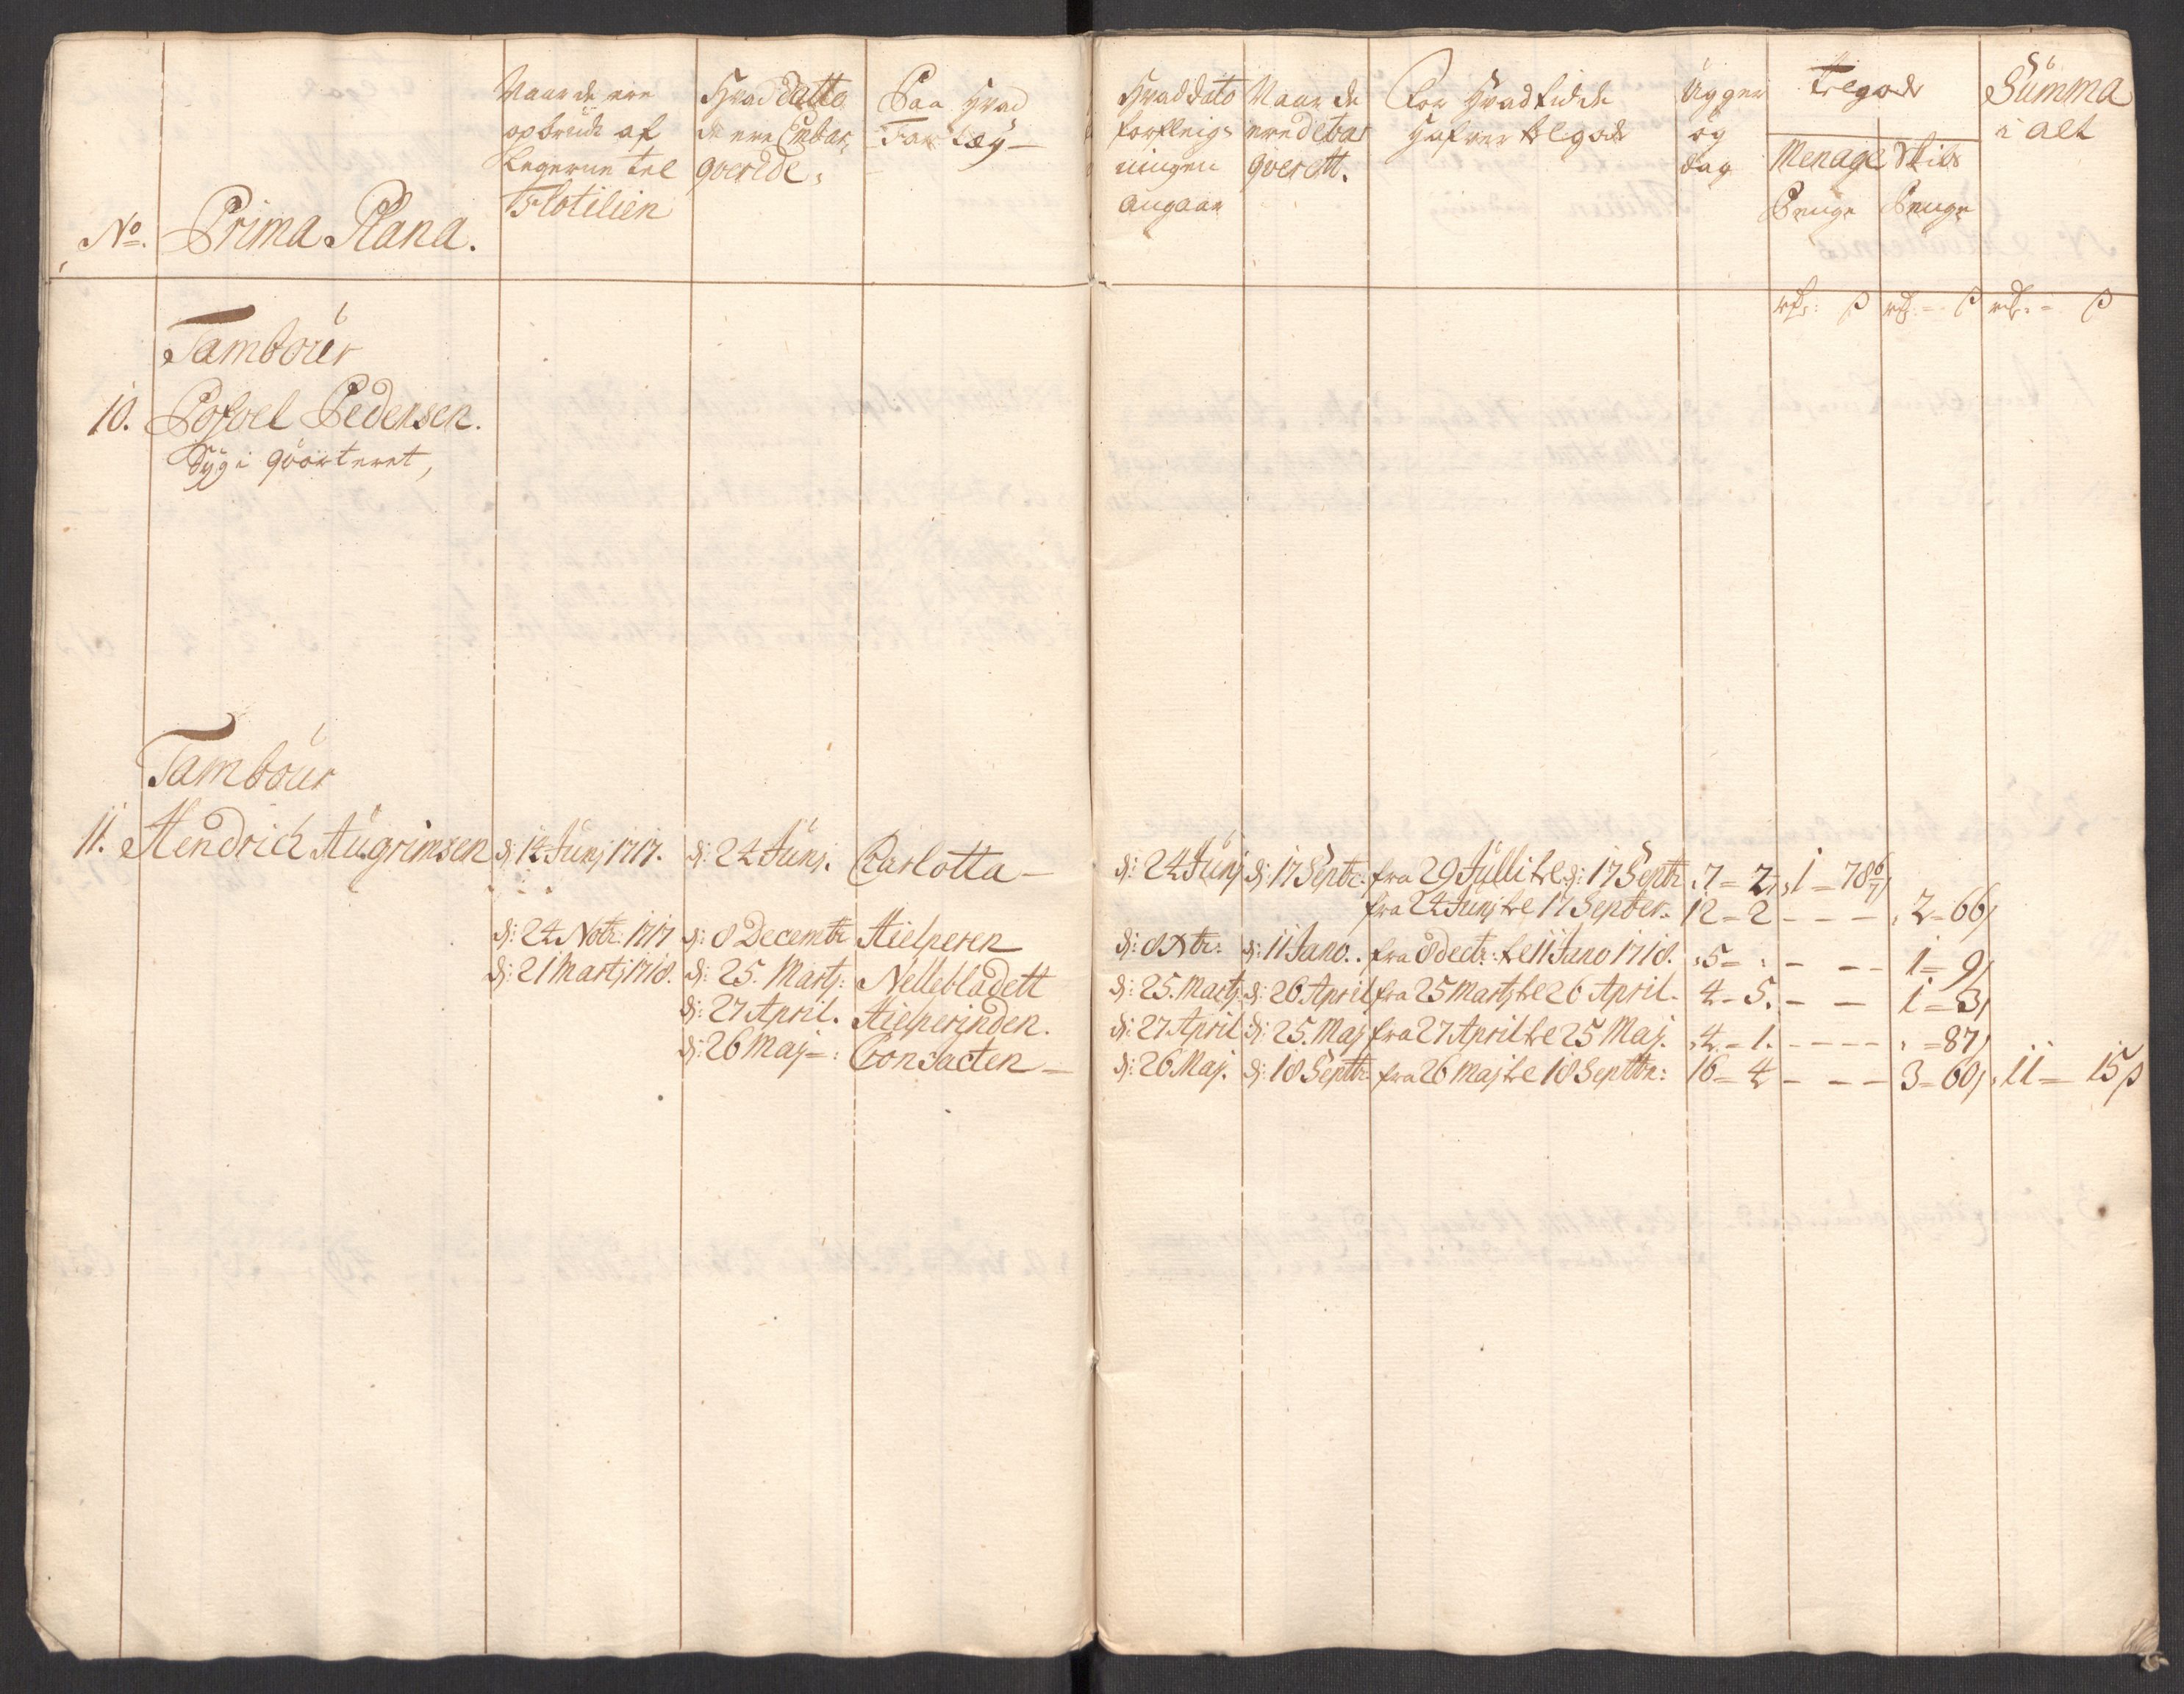 Naar de ere
optrude af
Legerne tel
Flotilien
Hvad datto
de ere Embar-
qverede,
Paa Hvad
Far Tøy
No. Prima Plana.
Hvad dato
forpleig-
ningen
angaar
Naar de
ere debar
qverett.
For Hvad tid de
Hafver tilgode
Ugger
og
dag
Tilgode
Menage Skibs
Penge Penge
Summa
i alt
rdr: ß rdr - ß rdr - ß
Tambour
10. Pofvel Pedersen.
Syg i qvorteret,
Tambour
11. Hendrich Augrimsen d: 14 Junj 1717. d: 24 Junj. Charlotta — d: 24 Junj d: 17 Septr: fra 29 Julli til d: 17 Septr 7 = 2 1 = 78 6/7
fra 24 Junj til 17 Septer: 12 = 2 - - - 2 = 66
d: 24 Notr: 1717 d: 8 Decembr Hielperen d: 8 Xbr: d: 11 Jano. fra 8 dectr: til 11 Jano 1718. 5 = : - - - 1 = 9
d: 21 Martj 1718. d: 25. Martj: Nellebladett d: 25. Martj d: 26 April fra 25 Martj til 26 April. 4 - 5. - - 1 = 3
d: 27 April. Hielperinden. d: 27 April d: 25. Maj fra 27 April til 25 Maj. 4 - 1. - - - - = 87
d: 26 Maj =: Consacten — d: 26 Maj. d: 18 Septbr: fra 26 Maj til 18 Septbr: 16 = 4 - - - 3 = 60 11 = 15 ß